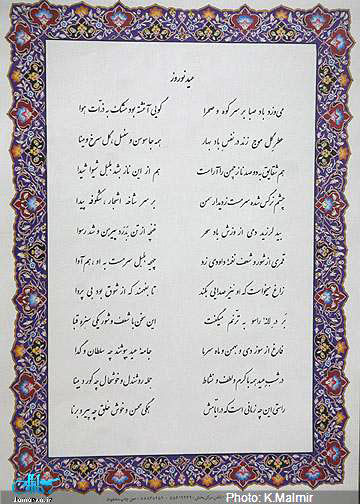 عید نوروز
می‌وزد باد صبا بر سر کوه و صحرا گویی آغشته بود مشک به ذرات هوا
عطر گل موج زند در نفس باد بهار همه جا سوسن و سنبل، گل سرخ و مینا
هم شقایق به دو صد ناز چمن را آراست هم از این ناز شد بلبل شیوا شیدا
چشم نرگس شده سرمست ز دیدار سمن بر سر شاخهٔ اشجار، شکوفه پیدا
بید لرزید دمی از وزش باد سحر غنچه از تن بدرد پیرهن و شد رسوا
قمری از شور و شعف نغمهٔ داودی زد چهچه بلبل سرمست به او هم‌آوا
زاغ میخواست که او نیز صدایی بکند تا بفهمند که از شوق بود بی پروا
در لانه راسو به ترنم میگفت این سخن با شعف و شور یکی سبزه قبا
فارغ از سوز دی و بهمن و ماه سرما جامهٔ عید بپوشند چه سلطان و گدا
در شب عید همه با کرم و لطف و نشاط جمله روشندل و خوشحال چه کور و بینا
راستی این چه زمانی است که در آرامش همگی خوش و خوش خلق چه پیر و برنا
Jamaran.ir
Photo: K.Malmir